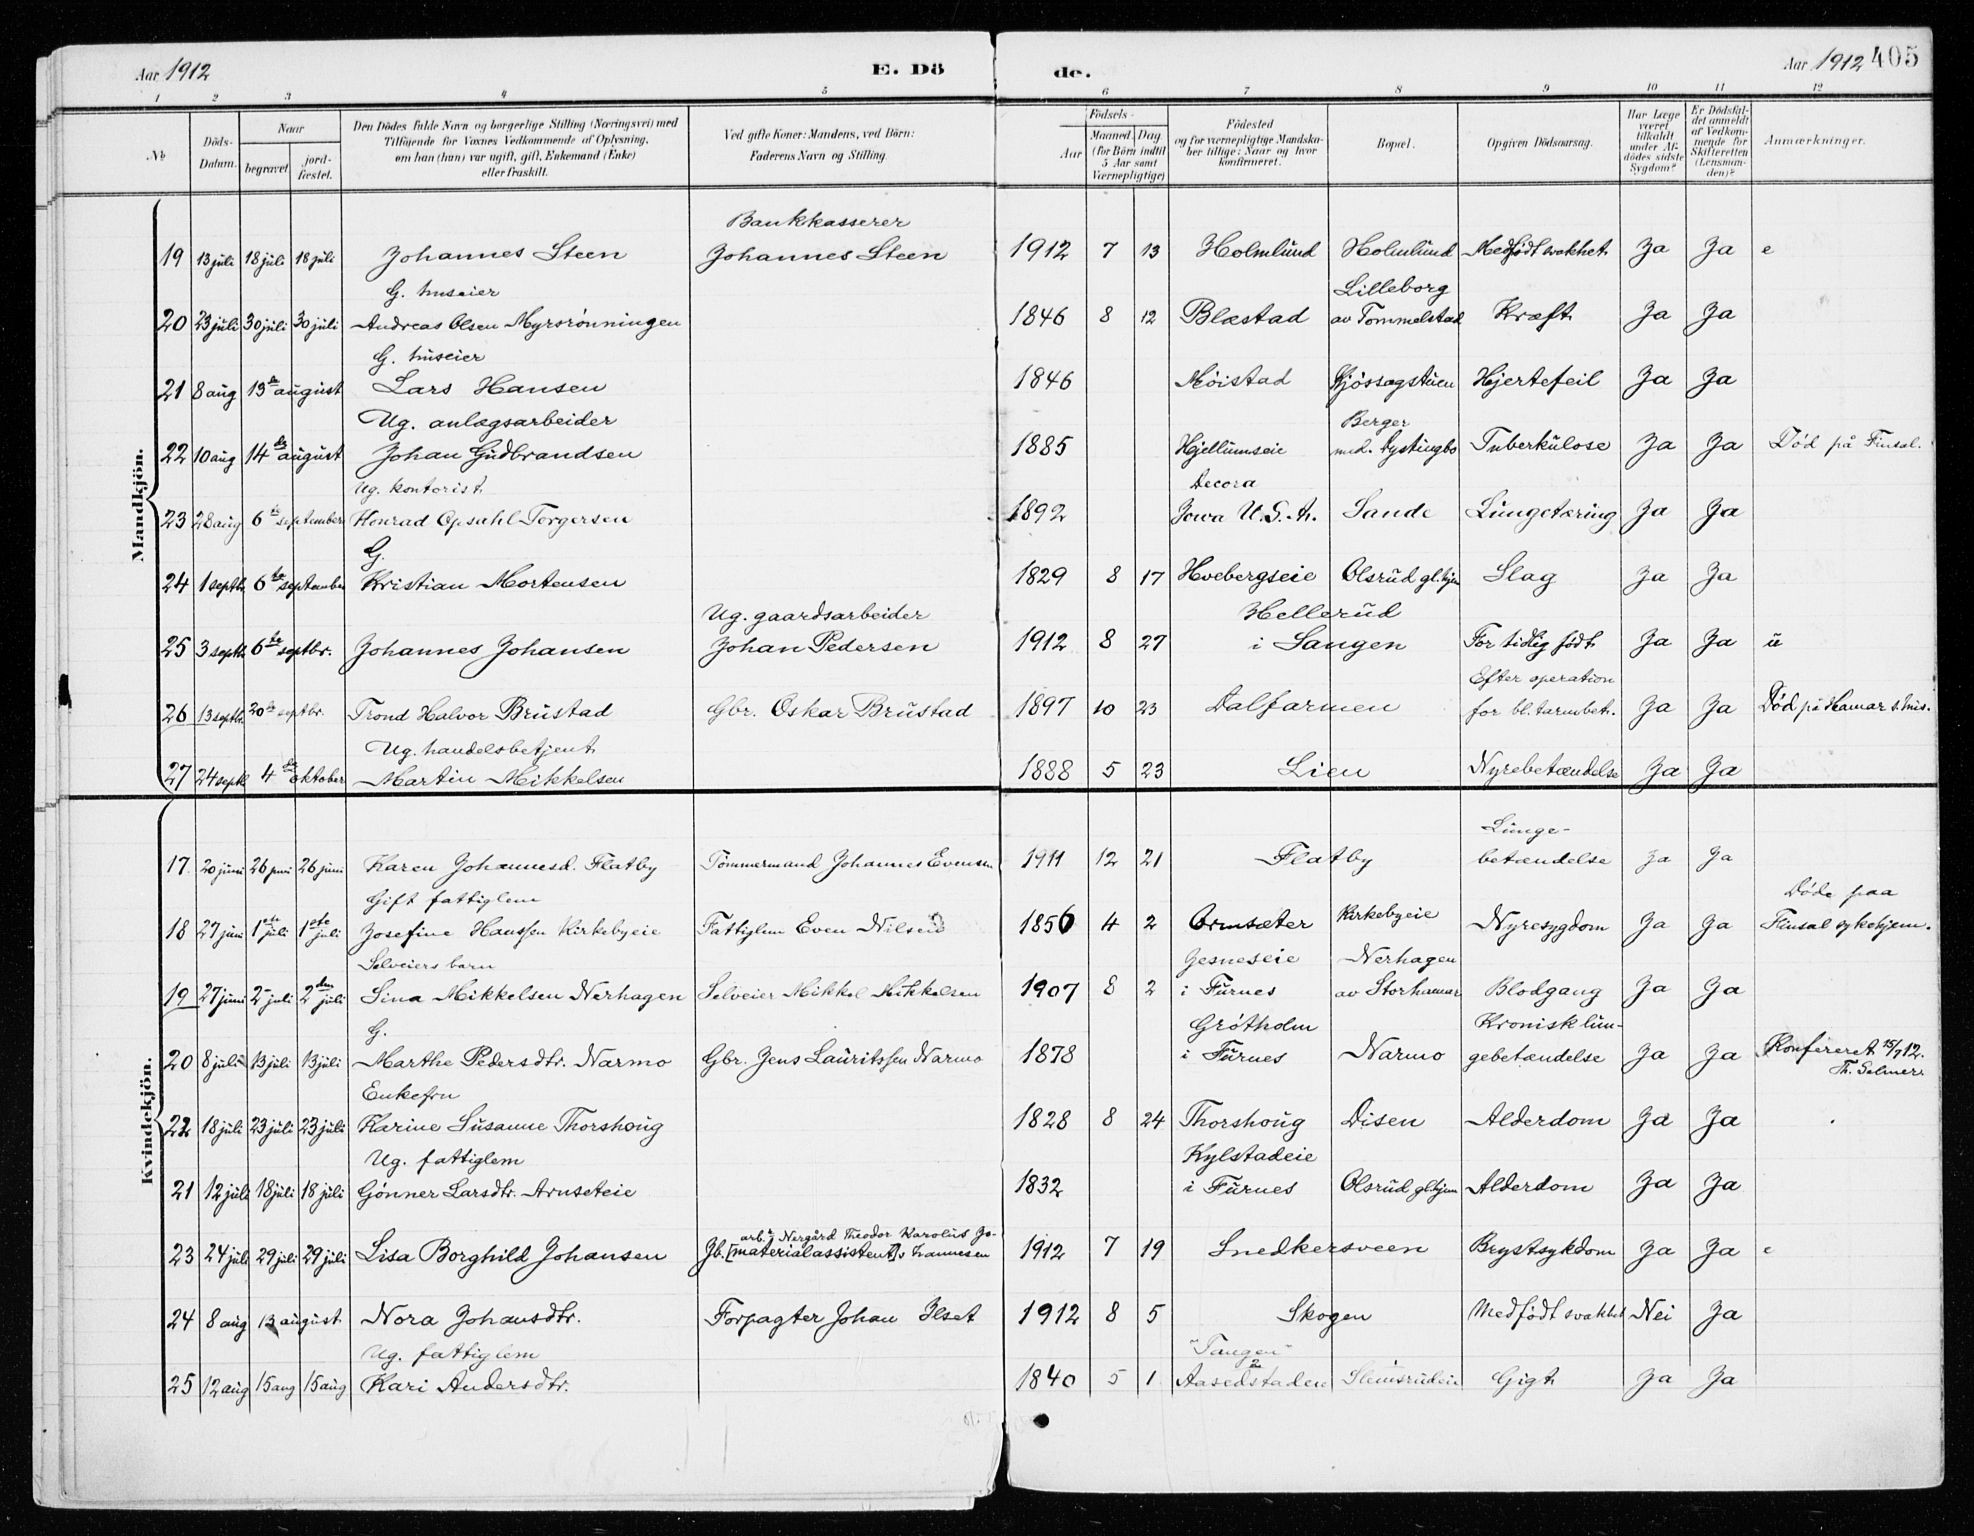 Aar 1912
E. Dö
de.
Aar 1912 405
1 2 3 4 5 6 7 8 9 10 11 12
No
Döds-Datum.
Naar
begravet.
jord-fæstet.
Den Dödes fulde Navn og borgerlige Stilling (Næringsvei) med
Tilföiende for Voxnes Vedkommende af Oplysning,
om han (hun) var ugift, gift, Enkemand (Enke)
eller fraskilt.
Ved gifte Koner: Mandens, ved Börn:
Faderens Navn og Stilling.
Födsels-
Aar
Maaned. Dag.
(for Börn indtil
5 Aar samt
Værnepligtige)
Födested
og for værnepligtige Mandska-
ber tillige: Naar og hvor
konfirmeret.
Bopæl.
Opgiven Dödsaarsag.
Har Læge
været
tilkaldt
under Af-
dödes sidste
Sygdom?
Er Dödsfal-
det anmeldt
af Vedkom-
mende for
Skifteretten
(Lensman-
den)?
Anmærkninger.
Mandkjön.
Bankkasserer
19 13 juli 18 juli 18 juli Johannes Steen Johannes Steen 1912 7 13 Holmlund Holmlund Medfödt svakhet Ja Ja e
G. huseier Lilleborg
20 23 juli 30 juli 30 juli Andreas Olsen Myrsrönningen 1846 8 12 Blæstad av Tommelstad Kræft Ja Ja
G. huseier
21 8 aug 13de august Lars Hansen 1846 Möistad Gjössegstuen Hjertefeil Ja Ja
Ug. anlægsarbeider Berger
22 10 aug 14de august Johan Gudbrandsen 1885 Hjellumseie ned. Dystingbo Tuberkulose Ja Ja Död på Finsal.
Ug. kontorist Decora
23 28 aug 6te september Konrad Opsahl-Torgersen 1892 Jowa U.S.A. Sande Lungetæring Ja Ja
G.
24 1 septbr 6te september Kristian Mortensen 1829 8 17 Hvebergseie Olsrud gl.hjem Slag Ja Ja
Ug. gaardsarbeider Hellerud
25 3 septb 6te septbr. Johannes Johansen Johan Pedersen 1912 8 27 i Sangen For tidlig födt Ja Ja u
Efter operation
26 13 septbr. 20de septbr. Trond Halvor Brustad Gbr. Oskar Brustad 1897 10 23 Dalfarmen for bl. tarmbet. Ja Ja Död på Hamar s.hus.
Ug. handelsbetjent
27 24 septb 4de oktober Martin Mikkelsen 1888 5 23 Lien Nyrebetændelse Ja Ja
Kvindekjön.
Lunge-
17 20 juni 26 juni 26 juni Karen Johannesd. Flatby Tömmermand Johannes Evensen 1911 12 21 Flatby betændelse Ja Ja
Gift fattiglem Döde paa
18 27 juni 1ste juli 1ste juli Josefine Hanssen Kirkebyeie Fattiglem Even Nilsen 1856 4 2 Ormsæter Kirkebyeie Nyresygdom Ja Ja Finsal sykehjem.
Selveiers barn Gesneseie Nerhagen
19 27 juni 2 juli 2den juli Lina Mikkelsen Nerhagen Selveier Mikkel Mikkelsen 1907 8 2 i Furnes av Storhamar Blodgang Ja Ja
G. Grötholm Kronisk lun-
20 8 juli 13 juli 13 juli Marthe Pedersdtr. Narmo Gbr. Jens Lauritssen Narmo 1878 i Furnes Narmo gebetændelse Ja Ja Konfereret 15/7 12.
Th. Selmer.
Enkefru
22 18 juli 23 juli 23 juli Karine Susanne Thorshoug 1828 8 24 Thorshoug Disen Alderdom Ja Ja
Ug. fattiglem Kylstadeie
21 12 juli 18 juli 18 juli Gönner Larsdtr. Arnseteie 1832 i Furnes Olsrud gl.hjem Alderdom Ja Ja
arb. Nergård Theodor Karolus Jo-
23 24 juli 29 juli 29 juli Lisa Borghild Johansen Gb. [materialassistent] hannesen 1912 7 19 Snedkersveen Brystsykdom Ja Ja e
24 8 aug 13 august Nora Johansdtr. Forpagter Johan Ilset 1912 8 5 Skogen Medfödt svakhet Nei Ja
Ug. fattiglem "Tangen"
25 12 aug 15 aug 15 aug Kari Andersdtr. 1840 5 1 Aasedstaden Slemsrudeie Gigt Ja Ja